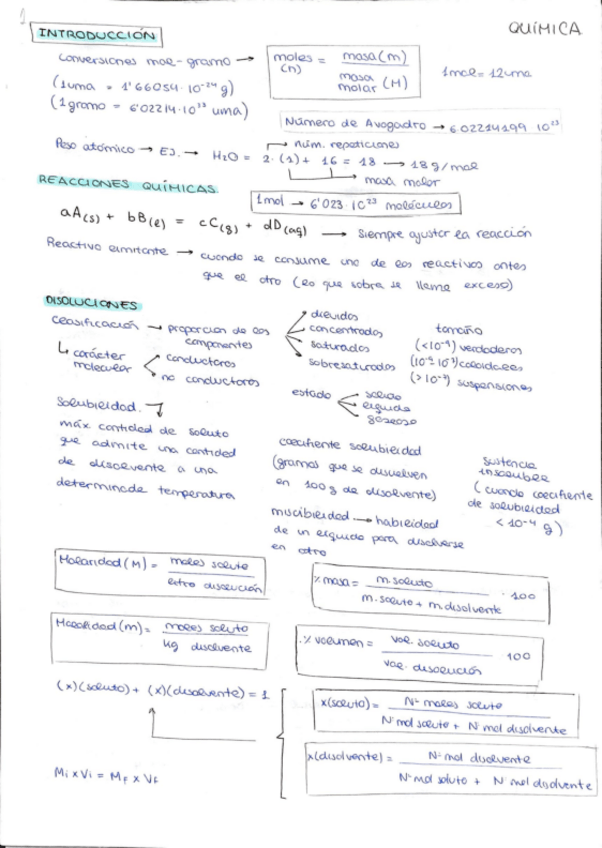 1
QUÍMICA
INTRODUCCIÓN
Conversiones mol-gramo → moles (n) = masa (m) / masa molar (M)
1mol = 12uma
(1uma = 1'66054·10⁻²⁴ g)
(1gramo = 6'02214·10²³ uma)
Número de Avogadro → 6.02214199 10²³
Peso atómico → Ej. → H₂O = 2·(1) + 16 = 18 → 18g/mol
núm. repeticiones
masa molar
REACCIONES QUÍMICAS
1mol → 6'023·10²³ moléculas
aA(s) + bB(l) = cC(g) + dD(aq) → Siempre ajustar la reacción
Reactivo limitante → cuando se consume uno de los reactivos antes
que el otro (lo que sobra se llama exceso)
DISOLUCIONES
Clasificación → proporción de los componentes
diluidos
concentrados
saturados
sobresaturados
tamaño
(<10⁻⁹) verdaderos
coloidales
suspensiones
↳ carácter molecular
conductores
no conductores
estado
solido
liquido
gaseoso
Solubilidad.
máx cantidad de soluto
que admite una cantidad
de disolvente a una
determinada temperatura
coeficiente solubilidad
(gramos que se disuelven
en 100g de disolvente)
sustancia
insoluble
(cuando coeficiente
de solubilidad
< 10⁻⁴ g)
miscibilidad → habilidad
de un liquido para disolverse
en otro
Molaridad (M) = moles soluto / litro disolución
% masa = m.soluto / m.soluto + m.disolvente · 100
Molalidad (m) = moles soluto / kg disolvente
% volumen = vol. soluto / vol. disolución 100
(x)(soluto) + (x)(disolvente) = 1
x(soluto) = Nº moles soluto / Nº mol soluto + Nº mol disolvente
x(disolvente) = Nº mol disolvente / Nº mol soluto + Nº mol disolvente
Mi x Vi = MF x VF